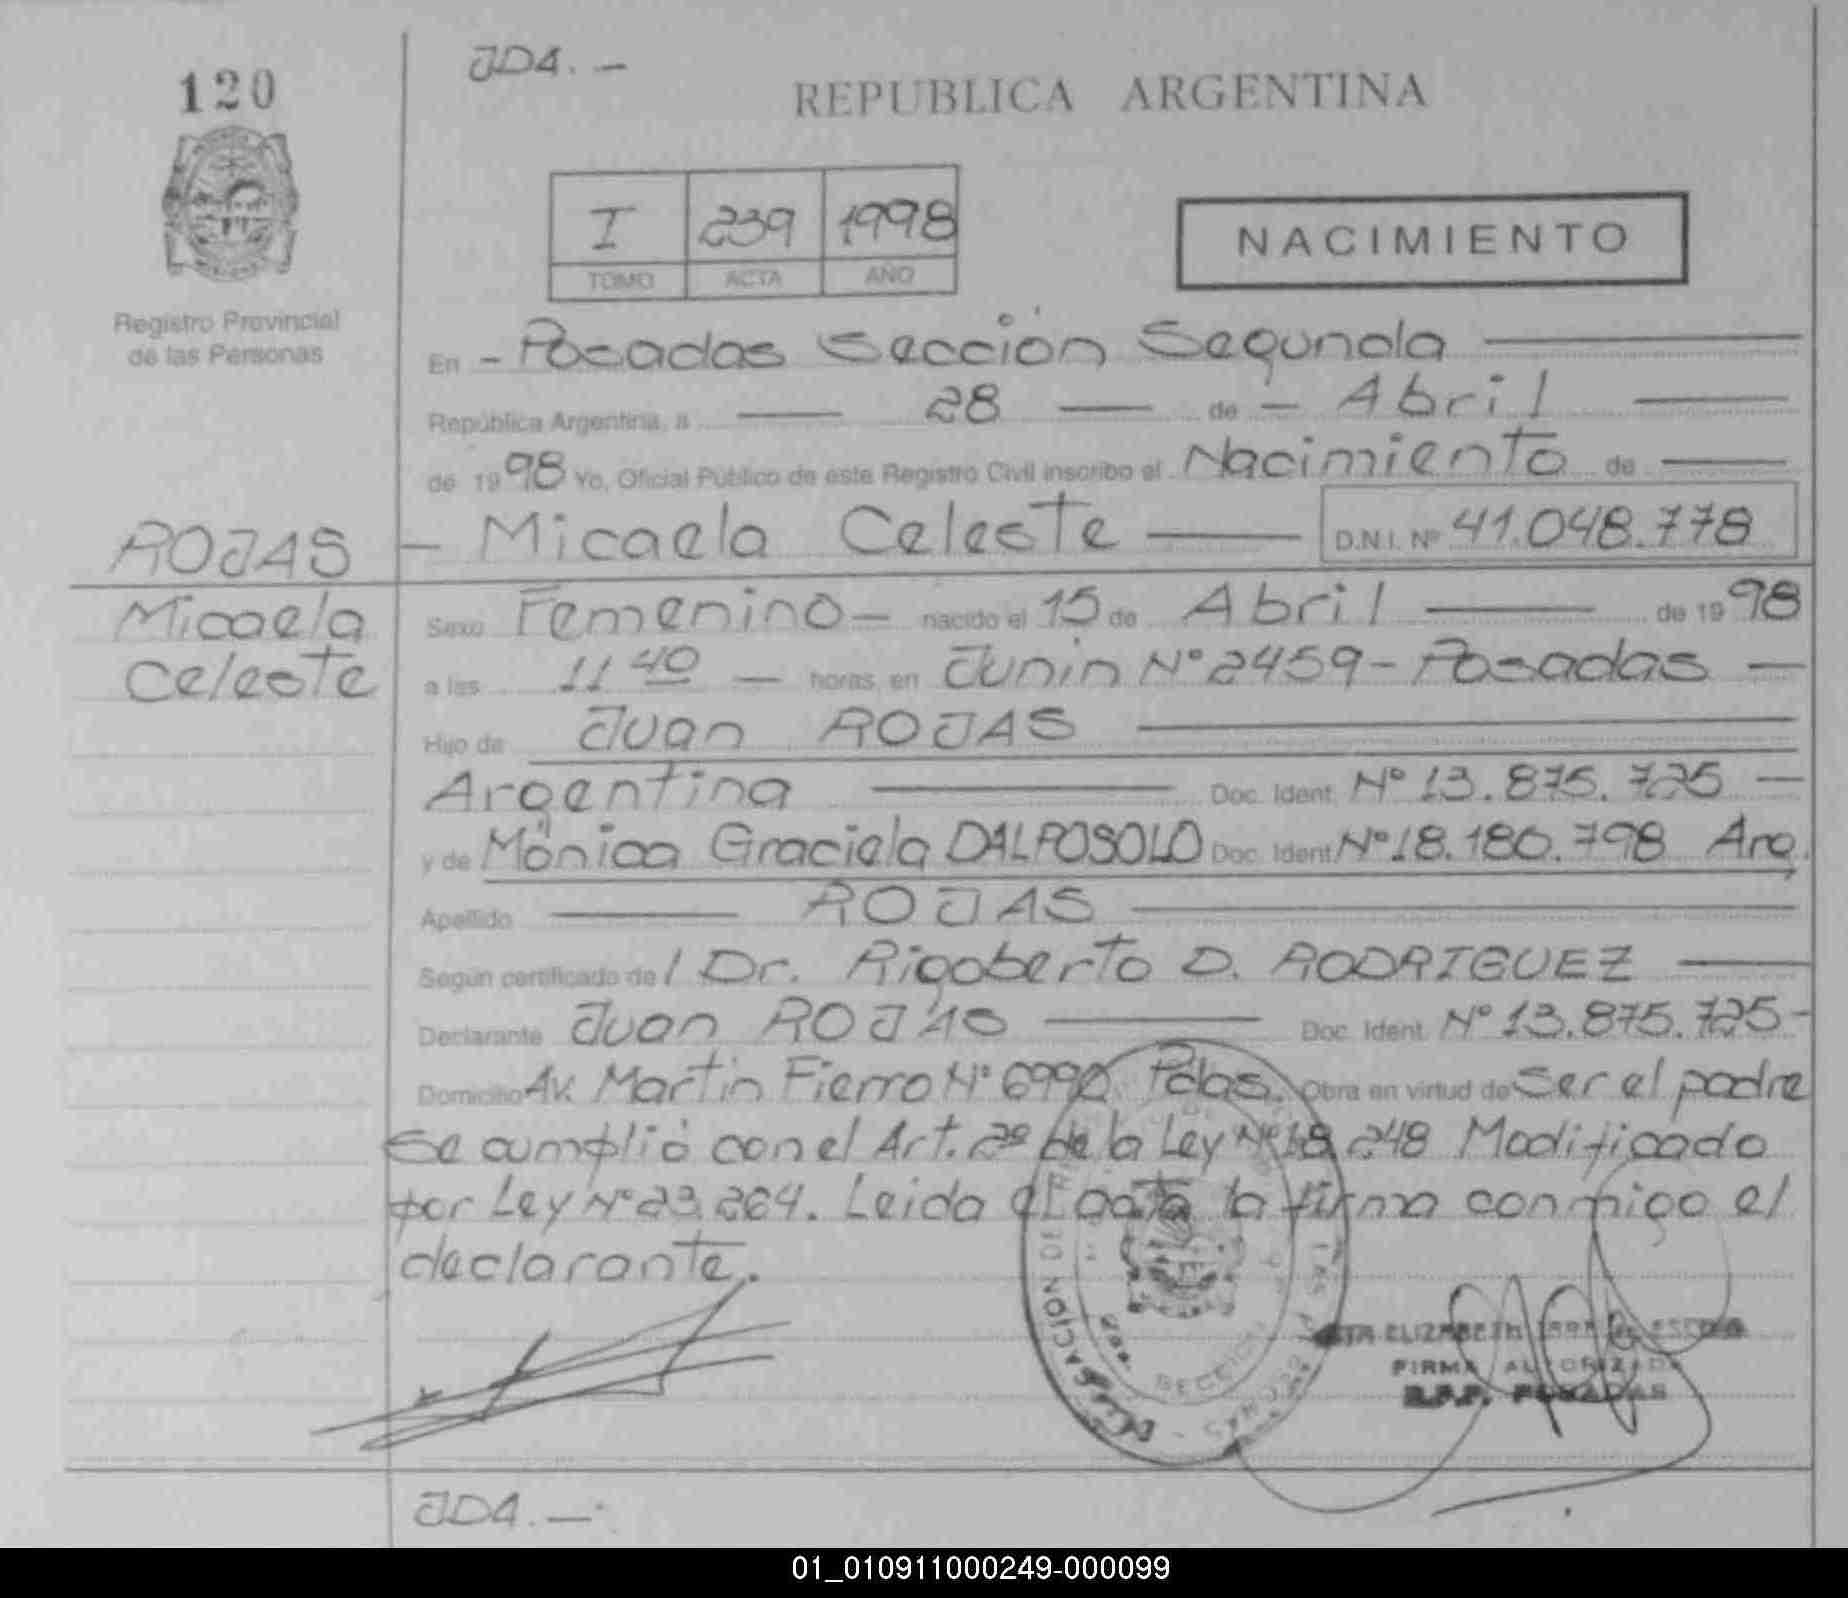 120
JDA. —
REPUBLICA ARGENTINA
I 239 1998
TOMO ACTA AÑO
NACIMIENTO
Registro Provincial
de las Personas
En - Posadas Sección Segunda
República Argentina, a 28 de - Abril
de 1998 Yo, Oficial Público de este Registro Civil inscribo el Nacimiento de
ROJAS
- Micaela Celeste D.N.I. Nº 41.048.778
Micaela
Celeste
Sexo Femenino - nacido el 15 de Abril de 1998
a las 11 40 - horas, en Junin Nº 2459 - Posadas -
Hijo de Juan ROJAS
Argentina Doc. Ident. Nº 13.875.725 -
y de Mónica Graciela DALPOSOLO Doc. Ident. Nº 18.180.798 Arg.
Apellido ROJAS
Según certificado de l Dr. Rigoberto D. RODRIGUEZ
Declarante Juan ROJAS Doc. Ident. Nº 13.875.725 -
Domicilio Av. Martin Fierro Nº 6990 Pdas. Obra en virtud de Ser el padre
Se cumplió con el Art. 2º de la Ley Nº 18.248 Modificado
por Ley Nº 23.264. Leida el acta la firma conmigo el
declarante.
ELIZABETH
FIRMA AUTORIZADA
POSADAS
JDA. —
01_010911000249-000099